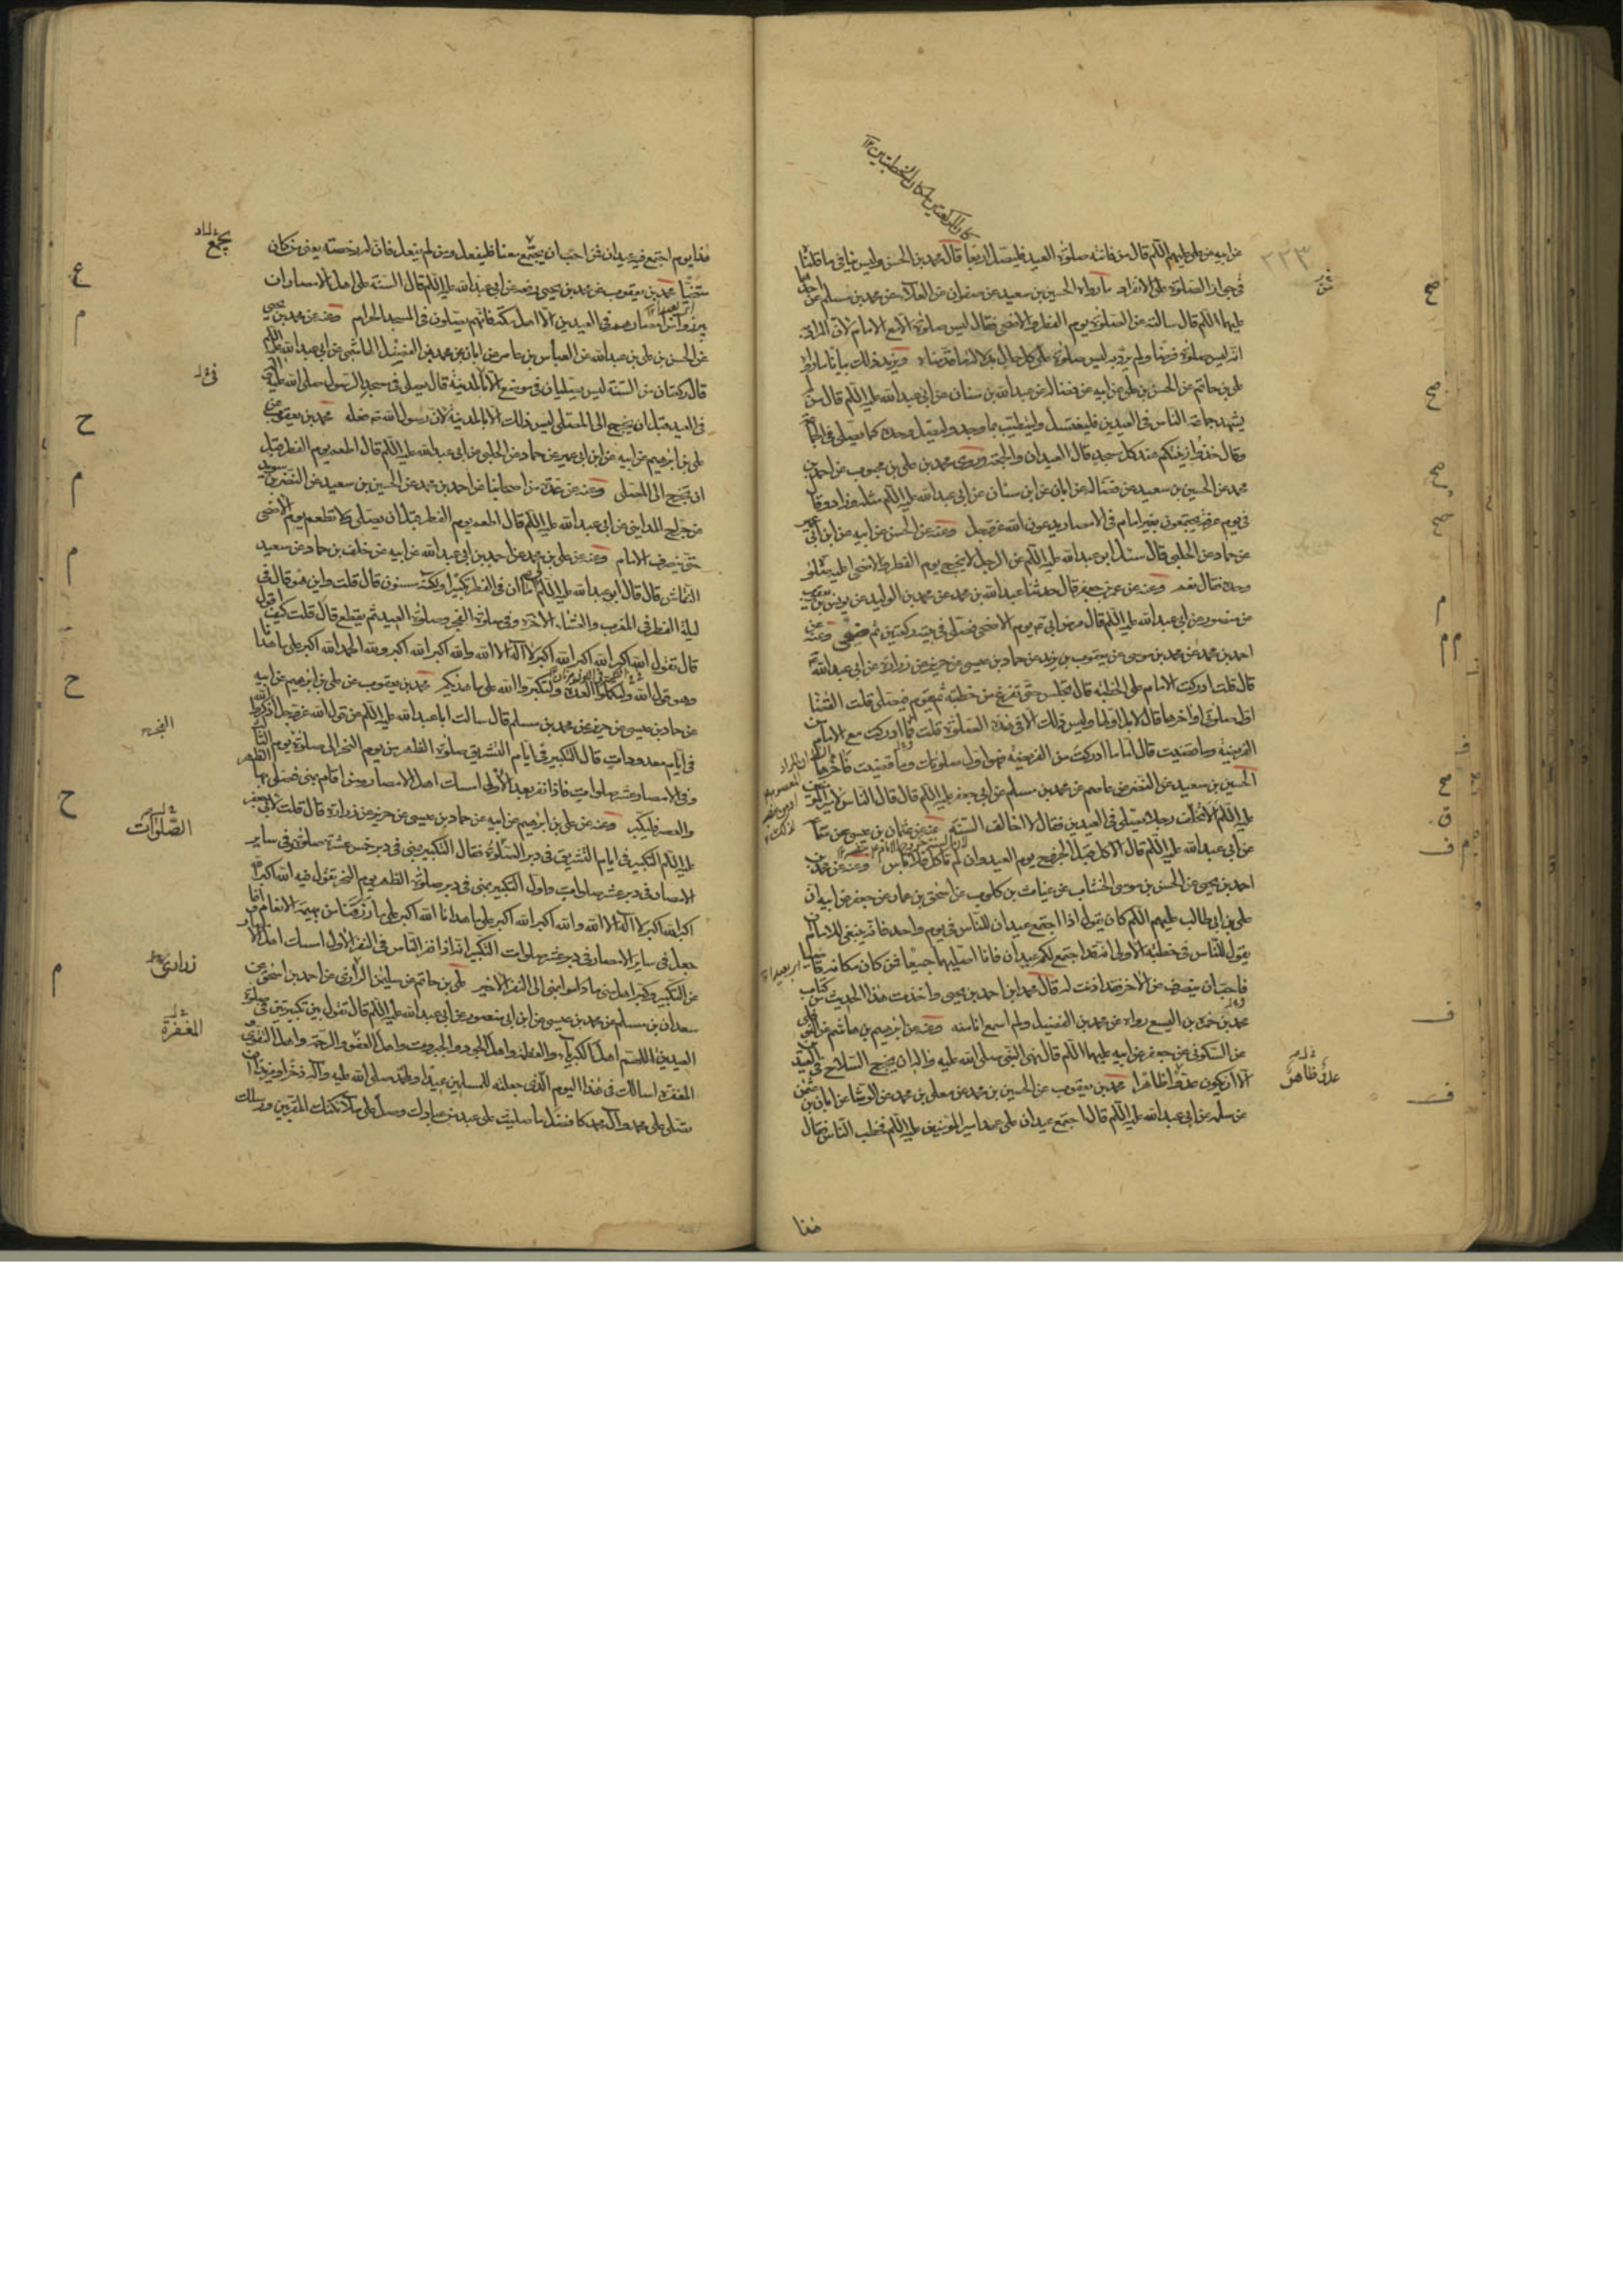 عن ابيه عن علي عليهم السلم قال من فاتته صلوة العيد فليصل اربعا قال محمد بن الحسن وليس ينافي ما قلناه
في جواز الصلوة على الانفراد ما رواه الحسين بن سعيد عن صفوان عن العلاء عن محمد بن مسلم عن احدهما
عليهما السلم قال سالته عن الصلوة يوم الفطر والاضحى فقال ليس صلوة الا مع الامام لان المراد به
انه ليس صلوة فرضا ولم يرد به ليس صلوة على كل حال بدلالة ما قدمناه ويزيد ذلك بيانا ما رواه
علي بن حاتم عن الحسن بن علي عن ابيه عن فضالة عن عبد الله بن سنان عن ابي عبد الله عليه السلم قال من لم
يشهد جماعة الناس في العيدين فليغتسل وليتطيب بما وجد وليصل وحده كما يصلي في الجماعة
وقال خذوا زينتكم عند كل مسجد قال العيدان والجمعة وروى محمد بن علي بن محبوب عن احمد بن
محمد عن الحسين بن سعيد عن فضالة عن ابان عن ابن سنان عن ابي عبد الله عليه السلم مثله وزاد وقال
في يوم عرفة يجتمعون بغير امام في الامصار يدعون الله عز وجل وعنه عن الحسن عن ابيه عن ابن ابي عمير
عن حماد عن الحلبي قال سئل ابو عبد الله عليه السلم عن الرجل لا يخرج يوم الفطر والاضحى اعليه صلوة
وحده فقال نعم وعنه عن عمر بن جعفر قال حدثنا عبد الله بن محمد عن محمد بن الوليد عن يونس بن يعقوب
عن منصور عن ابي عبد الله عليه السلم قال مرض ابي يوم الاضحى فصلى في بيته ركعتين ثم ضحى وعنه عن
احمد بن محمد عن محمد بن موسى عن يعقوب بن يزيد عن حماد بن عيسى عن حريز عن زرارة عن ابي عبد الله
قال قلت ادركت الامام على الخطبة قال تجلس حتى تفرغ من خطبته ثم تقوم فتصلي قلت القضا
اول صلوتي او اخرها قال لا بل اولها وليس ذلك الا في هذه الصلوة قلت فما ادركت مع الامام من
الفريضة وما قضيت قال اما ما ادركت من الفريضة فهو اول صلوتك وما قضيت فاخرها
الحسين بن سعيد عن النضر عن عاصم عن محمد بن مسلم عن ابي جعفر عليه السلم قال قال الناس لامير المؤمنين
عليه السلم الا تخلف رجلا يصلي في العيدين فقال لا اخالف السنة عنه عن عثمان بن عيسى عن سماعة
عن ابي عبد الله عليه السلم قال الاكل قبل الخروج يوم العيد وان لم تاكل فلا باس وعنه عن محمد بن
احمد بن يحيى عن الحسن بن موسى الخشاب عن غياث بن كلوب عن اسحق بن عمار عن جعفر عن ابيه ان
علي بن ابي طالب عليهم السلم كان يقول اذا اجتمع عيدان للناس في يوم واحد فانه ينبغي للامام ان
يقول للناس في خطبته الاولى انه قد اجتمع لكم عيدان فانا اصليهما جميعا فمن كان مكانه قاصيا
فاحب ان ينصرف عن الاخر فقد اذنت له قال محمد بن احمد بن يحيى واخذت هذا الحديث من كتاب
محمد بن حمزة بن اليسع رواه عن محمد بن الفضيل ولم اسمع انا منه وعنه عن ابرهيم بن هاشم عن النوفلي
عن السكوني عن جعفر عن ابيه عليهما السلم قال نهى النبي صلى الله عليه واله ان يخرج السلاح في العيدين
الا ان يكون عدوا ظاهرا محمد بن يعقوب عن الحسين بن محمد عن معلى بن محمد عن الوشا عن ابان بن عثمن
عن سلمة عن ابي عبد الله عليه السلم قال اجتمع عيدان على عهد امير المؤمنين عليه السلم فخطب الناس فقال
هذا
عدو ظاهر
هذا يوم اجتمع فيه عيدان فمن احب ان يجتمع معنا فليفعل ومن لم يفعل فان له رخصة يعني من كان
متنحيا محمد بن يعقوب عن محمد بن يحيى رفعه عن ابي عبد الله عليه السلم قال السنة على اهل الامصار ان
يبرزوا من امصارهم في العيدين الا اهل مكة فانهم يصلون في المسجد الحرام وعنه عن محمد بن يحيى
عن الحسن بن علي بن عبد الله عن العباس بن عامر عن ابان عن محمد بن الفضل الهاشمي عن ابي عبد الله عليه السلم
قال ركعتان من السنة ليس يصليان في موضع الا بالمدينة قال يصلي في مسجد الرسول صلى الله عليه واله
في العيد قبل ان يخرج الى المصلى ليس ذلك الا بالمدينة لان رسول الله ص فعله محمد بن يعقوب عن
علي بن ابرهيم عن ابيه عن ابن ابي عمير عن حماد عن الحلبي عن ابي عبد الله عليه السلم قال اطعم يوم الفطر قبل
ان تخرج الى المصلى وعنه عن عدة من اصحابنا عن احمد بن محمد عن الحسين بن سعيد عن النضر بن سويد
عن جراح المدايني عن ابي عبد الله عليه السلم قال اطعم يوم الفطر قبل ان يصلي ولا تطعم يوم الاضحى
حتى ينصرف الامام وعنه عن علي بن محمد عن احمد بن ابي عبد الله عن ابيه عن خلف بن حماد عن سعيد
النقاش قال قال ابو عبد الله عليه السلم لي اما ان في الفطر تكبيرا ولكنه مسنون قال قلت واين هو قال في
ليلة الفطر في المغرب والعشاء الاخرة وفي صلوة الفجر وصلوة العيد ثم يقطع قال قلت كيف اقول
قال تقول الله اكبر الله اكبر الله اكبر لا اله الا الله والله اكبر الله اكبر ولله الحمد الله اكبر على ما هدانا
وهو قول الله ولتكملوا العدة ولتكبروا الله على ما هديكم محمد بن يعقوب عن علي بن ابرهيم عن ابيه
عن حماد بن عيسى عن حريز عن محمد بن مسلم قال سالت ابا عبد الله عليه السلم عن قول الله عز وجل اذكروا الله
في ايام معدودات قال التكبير في ايام التشريق صلوة الظهر من يوم النحر الى صلوة يوم الثالث
وفي الامصار عشر صلوات فاذا نفر بعد الاولى امسك اهل الامصار ومن اقام بمنى فصلى بها الظهر
والعصر فليكبر وعنه عن علي بن ابرهيم عن ابيه عن حماد بن عيسى عن حريز عن زرارة قال قلت لابي جعفر
عليه السلم التكبير في ايام التشريق في دبر الصلوة فقال التكبير بمنى في دبر خمس عشرة صلوة وفي ساير
الامصار في دبر عشر صلوات واول التكبير بمنى في دبر صلوة الظهر يوم النحر تقول فيه الله اكبر الله
اكبر لا اله الا الله والله اكبر الله اكبر على ما هدانا الله اكبر على ما رزقنا من بهيمة الانعام وانما
جعل في ساير الامصار في دبر عشر صلوات التكبير انه اذا نفر الناس في النفر الاول امسك اهل الامصار
عن التكبير وكبر اهل منى ما داموا بمنى الى النفر الاخير علي بن حاتم عن سليمن الرازي عن احمد بن اسحق عن
سعدان بن مسلم عن محمد بن عيسى عن ابن ابي منصور عن ابي عبد الله عليه السلم قال تقول بين كل تكبيرتين في صلوة
العيدين اللهم اهل الكبرياء والعظمة واهل الجود والجبروت واهل العفو والرحمة واهل التقوى
المغفرة اسالك في هذا اليوم الذي جعلته للمسلمين عيدا ولمحمد صلى الله عليه واله ذخرا ومزيدا ان
تصلي على محمد وال محمد كافضل ما صليت على عبد من عبادك وصل على ملائكتك المقربين ورسلك
يجمع
الصلوات
زراري
المغفرة